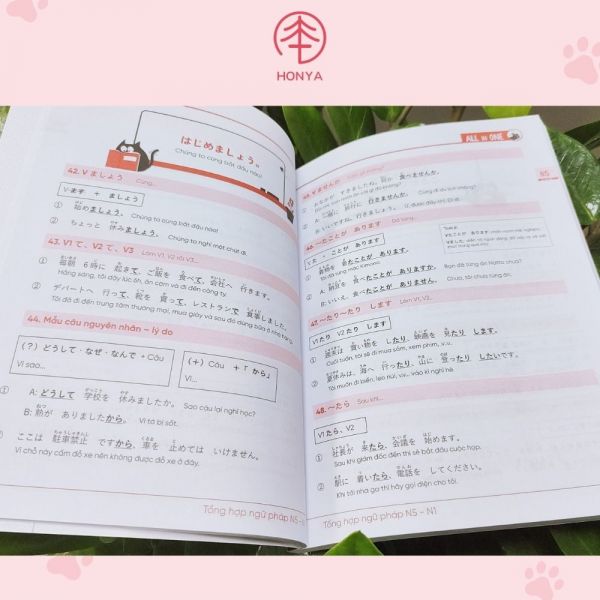 HONYA
はじめましょう。
Chúng ta cùng bắt đầu nào!
42. V ましょう Cùng...
V ます + ましょう
① 始めましょう。 Chúng ta cùng bắt đầu nào!
② ちょっと 休みましょう。 Chúng ta nghỉ một chút đi.
43. V1 て、V2 て、V3 Làm V1, V2 rồi V3...
① 毎朝 6時に 起きて、ご飯を 食べて、会社へ 行きます。
Hằng sáng, tôi dậy lúc 6h, ăn cơm và đi đến công ty.
② デパートへ 行って、靴を 買って、レストランで 食事しました。
Tôi đã đi đến trung tâm thương mại, mua giày và sau đó dùng bữa ở nhà hàng.
44. Mẫu câu nguyên nhân – lý do
(?) どうして・なぜ・なんで + Câu
Vì sao...
(+) Câu + 「から」
Vì...
① A: どうして 学校を 休みましたか。 Sao cậu lại nghỉ học?
B: 熱が ありましたから。 Vì tớ bị sốt.
② ここは 駐車禁止 ですから、車を 止めては いけません。
Vì chỗ này cấm đỗ xe nên không được đỗ xe ở đây.
Tổng hợp ngữ pháp N5 - N1
ALL IN ONE
85
45. V ませんか
46. ~たことが あります Đã từng...
V た + ことが あります
① 着物を 着たことが あります。
Tôi đã từng mặc Kimono.
② A: 納豆を 食べたことが ありますか。 Bạn đã từng ăn Natto chưa?
B: いいえ、食べたことが ありません。 Chưa, tôi chưa từng ăn.
47. ~たり~たり します Làm V1, V2...
V1 たり V2 たり します
① 週末は 買い物を したり、映画を 見たり します。
Cuối tuần, tôi sẽ đi mua sắm, xem phim, v.v.
② 夏休みは、海へ 行ったり、山に 登ったり したいです。
Tôi muốn đi biển, leo núi, v.v... vào kì nghỉ hè.
48. ~たら Sau khi...
V1 たら、V2
① 社長が 来たら、会議を 始めます。
Sau khi giám đốc đến thì sẽ bắt đầu cuộc họp.
② 駅に 着いたら、電話を してください。
Khi tới nhà ga thì hãy gọi điện cho tôi.
Tổng hợp ngữ pháp N5 - N1